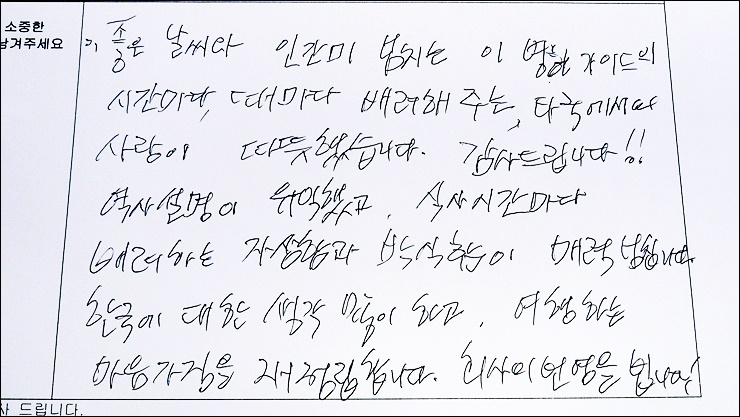 소중한
남겨주세요
좋은 날씨와 인간미 넘치는 이 병헌 가이드의
시간마다, 때마다 배려해 주는, 타국에서의
사랑이 따뜻했습니다. 감사드립니다!!
역사설명이 유익했고, 식사시간마다
배려하는 자상함과 박식함이 매력 넘칩니다
한국에 대한 생각 많이 하고, 여행하는
마음가짐을 재정립합니다. 회사의 번영을 빕니다!
사 드립니다.